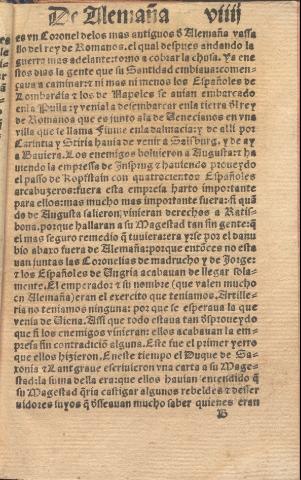 De Alemaña viiij
es vn Coronel delos mas antiguos d̄ Alemaña vassa
llo del rey de Romanos. el qual despues andando la
guerra mas adelante: como a cobrar la chusa. Ya ene
stos dias la gente que su Santidad embiaua: comen
çaua a caminar: τ ni mas ni menos los Españoles de
Lombardia τ los de Napoles se auian embarcado
en la Pulla: y venia a desembarcar en la tierra ðl rey
de Romanos que es junto ala de Venecianos en vna
villa que se llama Fiume en la dalmacia: y de alli por
Carintia y Stiria hauia de venir a Salsburg, y de ay
a Bauiera. Los enemigos boluieron a Augusta: τ ha
uiendo la empressa de Insprug τ hauiendo proueydo
el passo de Kopfstain con quatrocientos Españoles
arcabuzeros: fuera esta empresa harto importante
para ellos: mas mucho mas importante fuera: si quā
do de Augusta salieron, vinieran derechos a Ratis-
bona. porque hallaran a su Magestad tan sin gente: q̄
el mas seguro remedio q̄ tuuiera era yrse por el danu
bio abaxo fuera de Alemaña: porque entōces no esta
uan juntas las Coronelias de madrucho y de Jorge:
τ los Españoles de Ungria acabauan de llegar sola-
mente. El emperador τ su nombre (que valen mucho
en Alemaña) eran el exercito que teniamos. Artille-
ria no teniamos ninguna: por que se esperaua la que
venia de Viena. Assi que todo estaua tan d̄sproueydo
que si los enemigos vinieran: ellos acabauan la em-
presa sin contradiciō alguna. Este fue el primer yerro
que ellos hizieron. En este tiempo el Duque de Sa-
xonia τ Lantgraue escriuieron vna carta a su Mage-
stad: la suma della era: que ellos hauian entendido q̄
su Magestad q̄ria castigar algunos rebeldes τ desser
uidores suyos q̄ desseauan mucho saber quienes eran
B